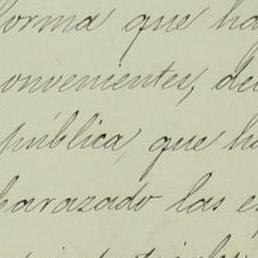 forma que ha
onvenientes, de
pública, que h
barazado las es